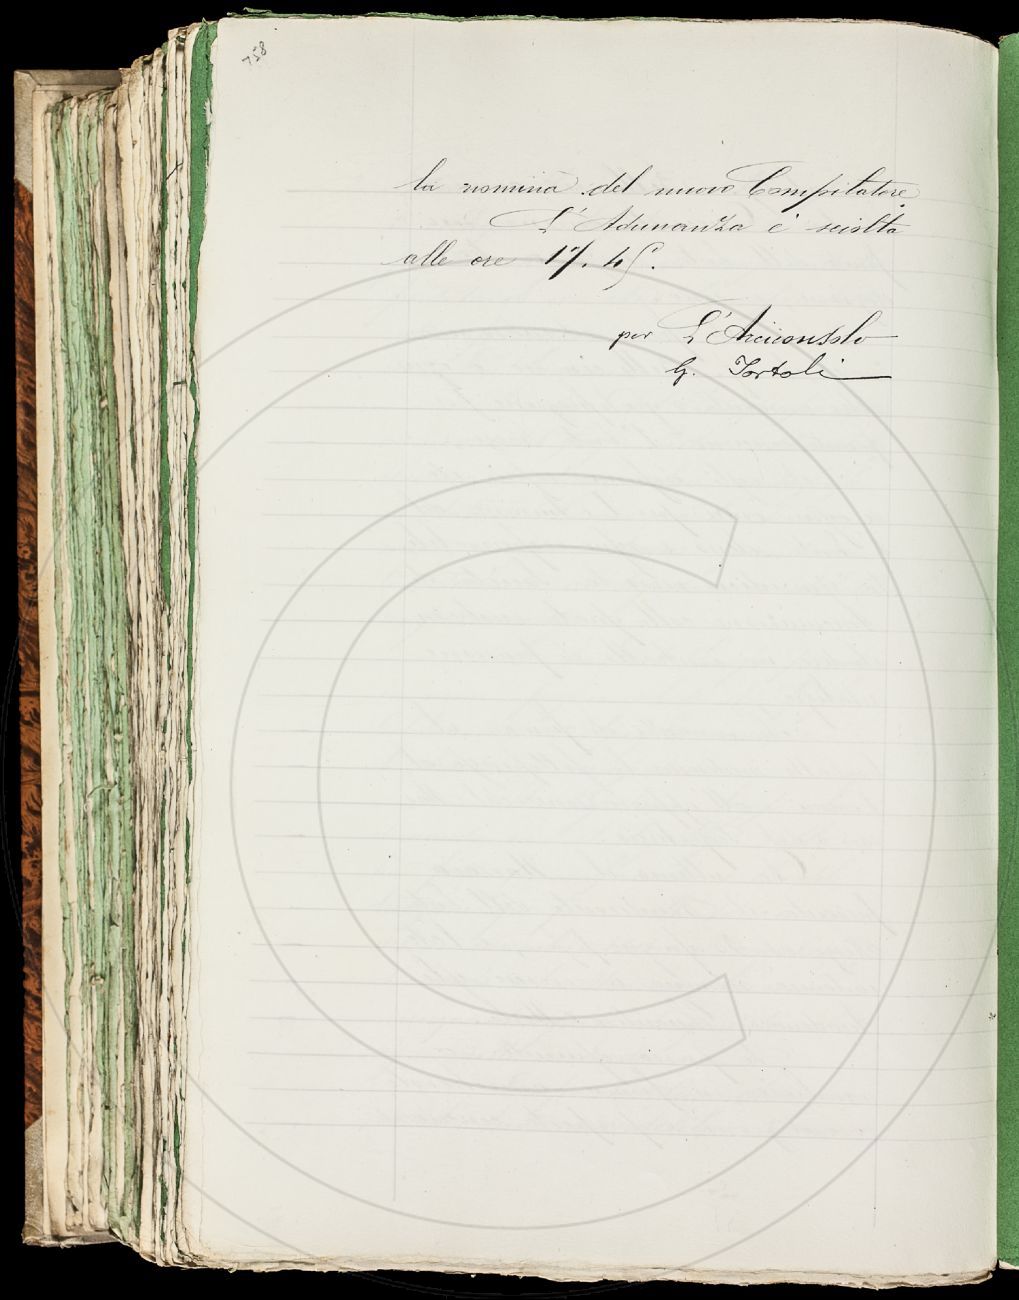 758
la nomina del nuovo Compilatore.
L'Adunanza è sciolta
alle ore 17. 45.
per L'Arciconsolo
G. Tortoli